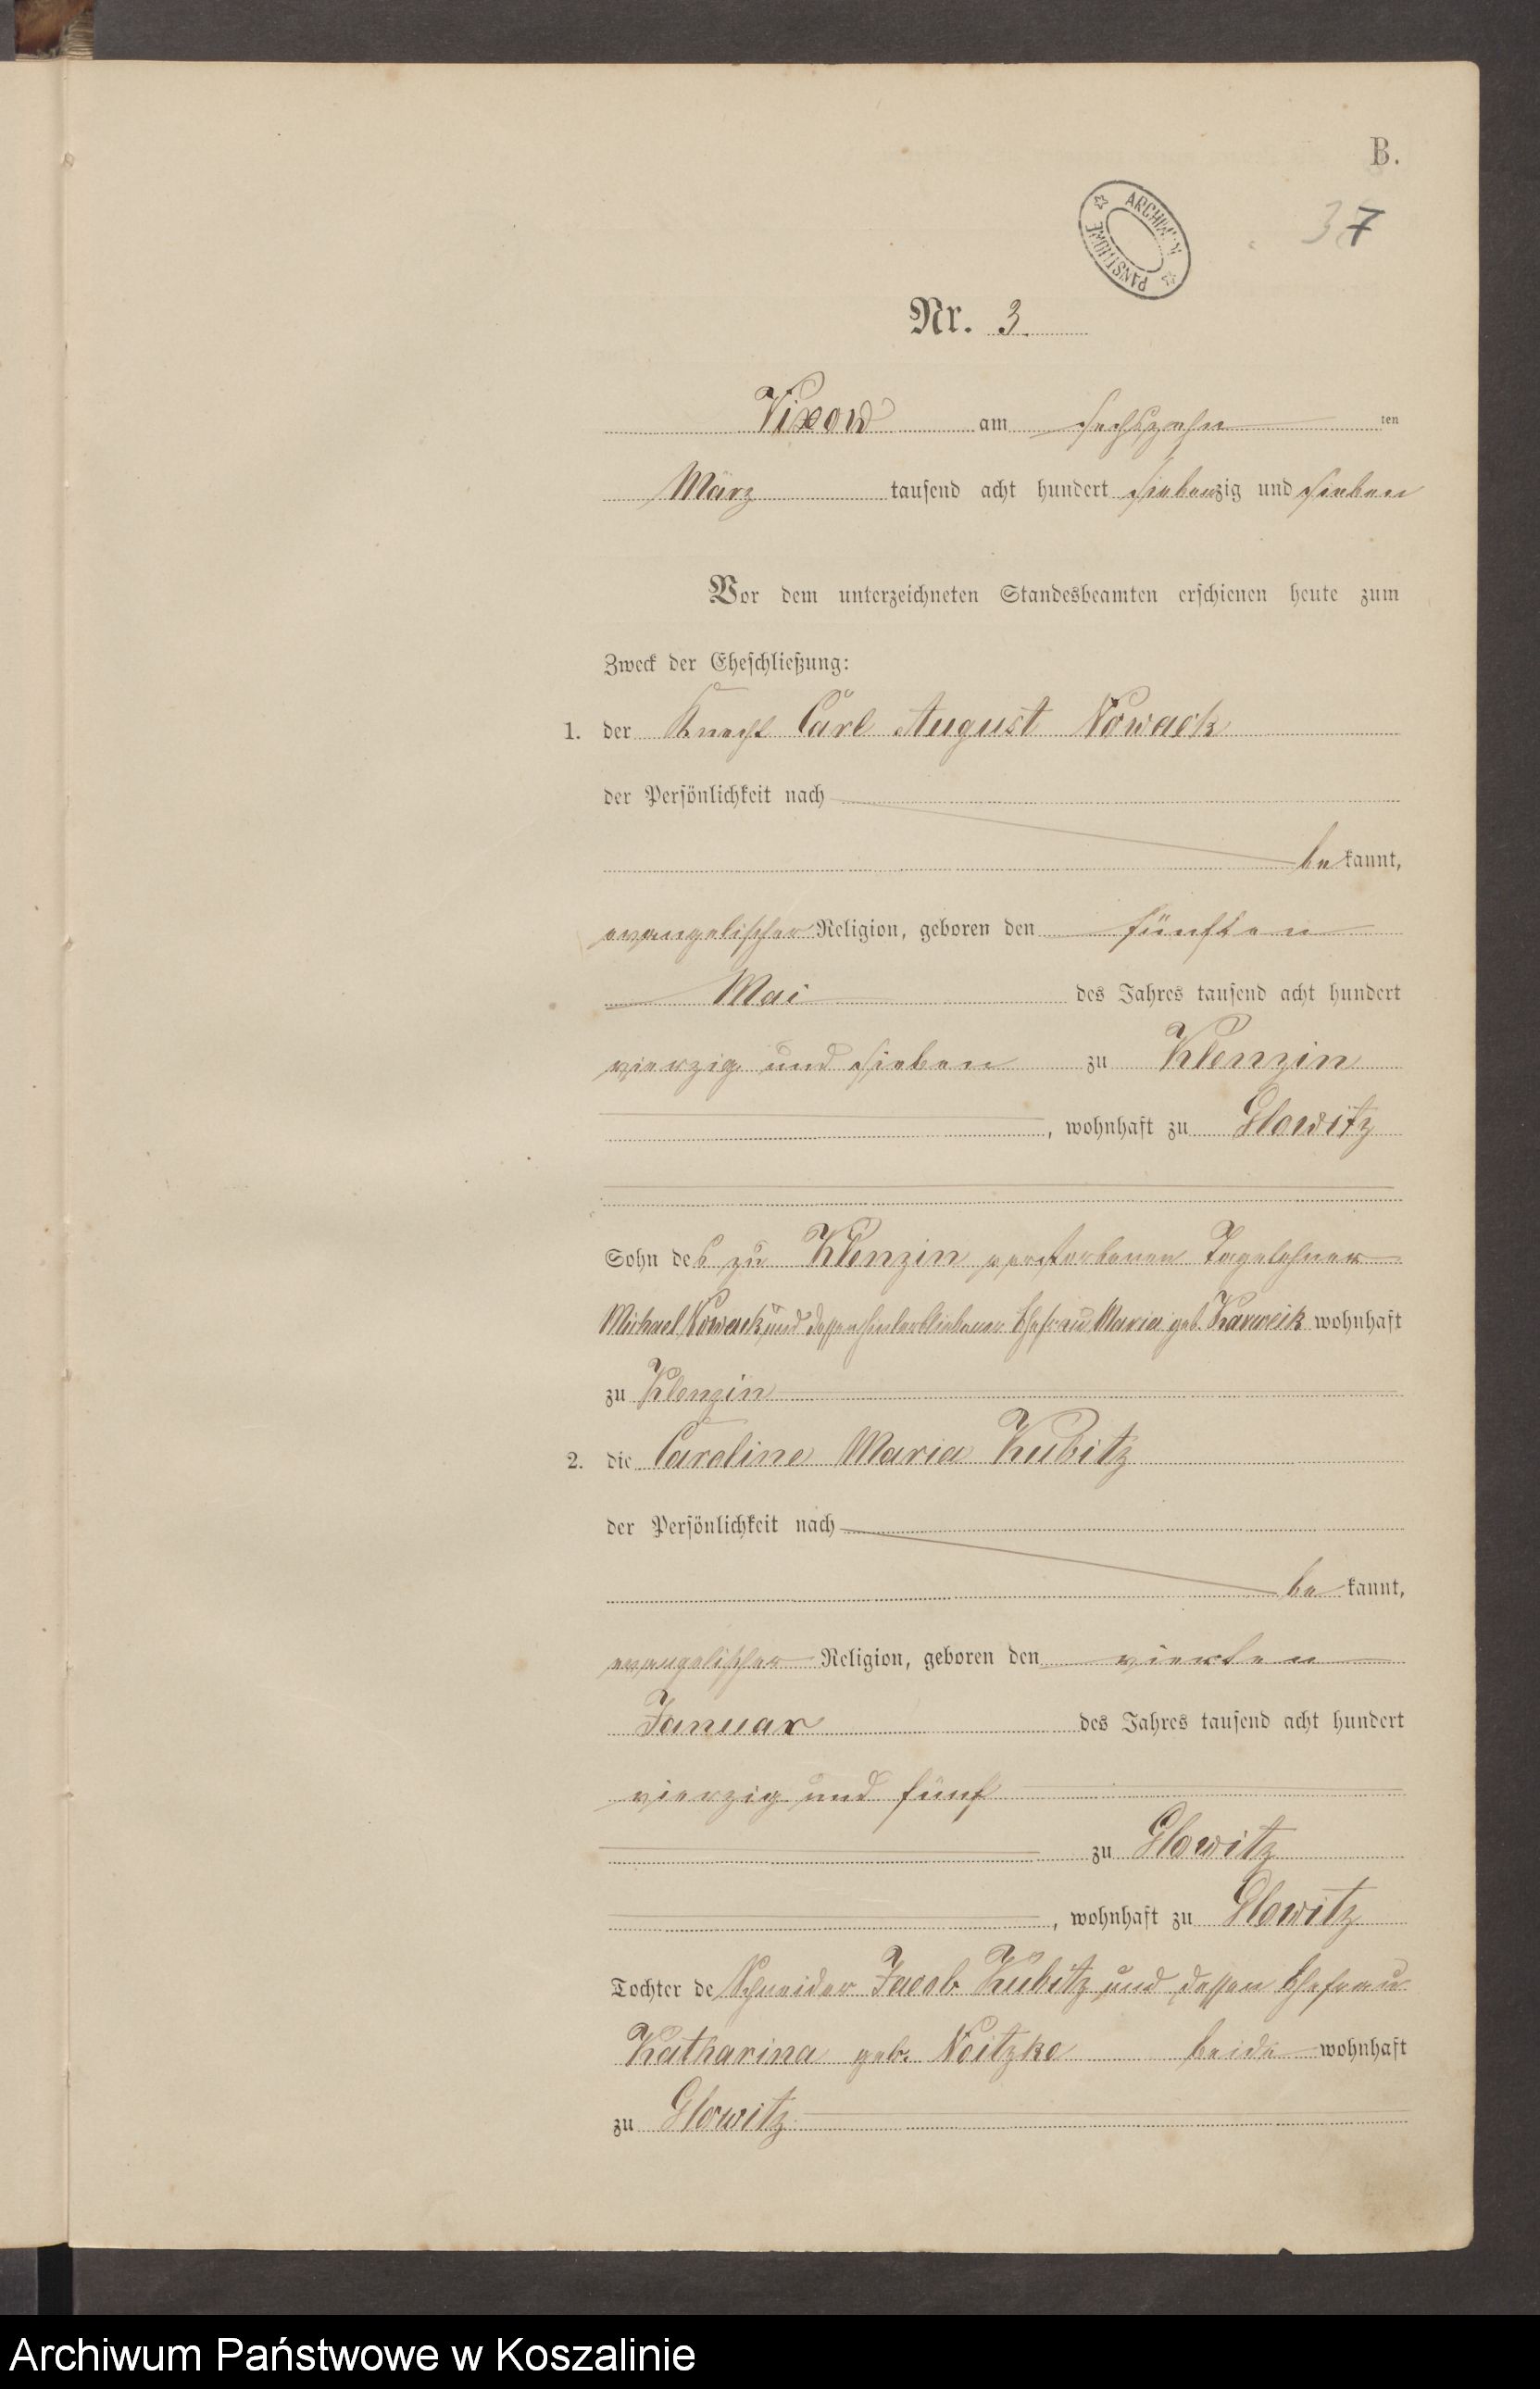 B.
ARCHIWUM
PAŃSTWOWE
37
Nr. 3.
Vixow am sechszehn ten
März tausend acht hundert siebenzig und sieben
Vor dem unterzeichneten Standesbeamten erschienen heute zum
Zweck der Eheschließung:
1. der Knecht Carl August Nowack
der Persönlichkeit nach
be kannt,
evangelischer Religion, geboren den fünften
Mai des Jahres tausend acht hundert
vierzig und sieben zu Klenzin
, wohnhaft zu Glowitz
Sohn des zu Klenzin verstorbenen Tagelöhner
Michael Nowack und dessen hinterbliebener Ehefrau Maria geb. Karweik wohnhaft
zu Klenzin
2. die Caroline Maria Kubitz
der Persönlichkeit nach
be kannt,
evangelischer Religion, geboren den vierten
Januar des Jahres tausend acht hundert
vierzig und fünf
zu Glowitz
, wohnhaft zu Glowitz
Tochter de Schneider Jacob Kubitz und dessen Ehefrau
Katharina geb. Noitzke beide wohnhaft
zu Glowitz
Archiwum Państwowe w Koszalinie